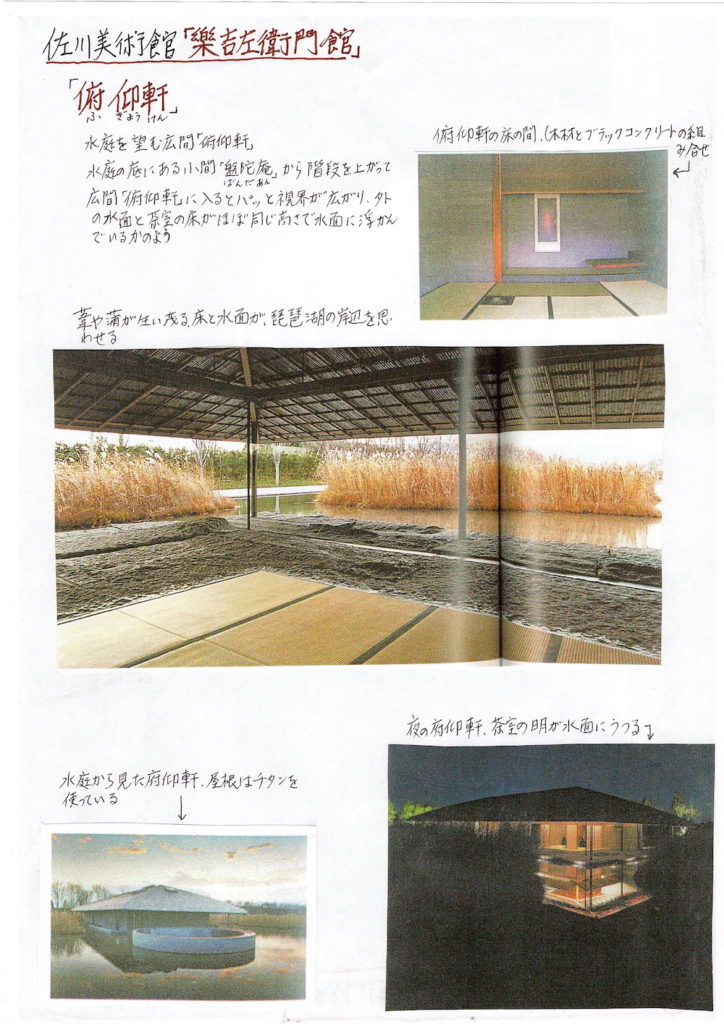 佐川美術館「樂吉左衛門館」
「俯仰軒」
ふ ぎょう けん
水庭を望む広間「俯仰軒」
水庭の底にある小間「盤陀庵」から階段を上がって
ばんだあん
広間「俯仰軒」に入るとパッと視界が広がり、外
の水面と茶室の床がほぼ同じ高さで水面に浮かん
でいるかのよう
俯仰軒の床の間、(木材とブラックコンクリートの組
み合せ
葦や蒲が生い茂る、床と水面が、琵琶湖の岸辺を思
わせる
夜の府仰軒、茶室の明が水面にうつる
水庭から見た府仰軒、屋根はチタンを
使っている